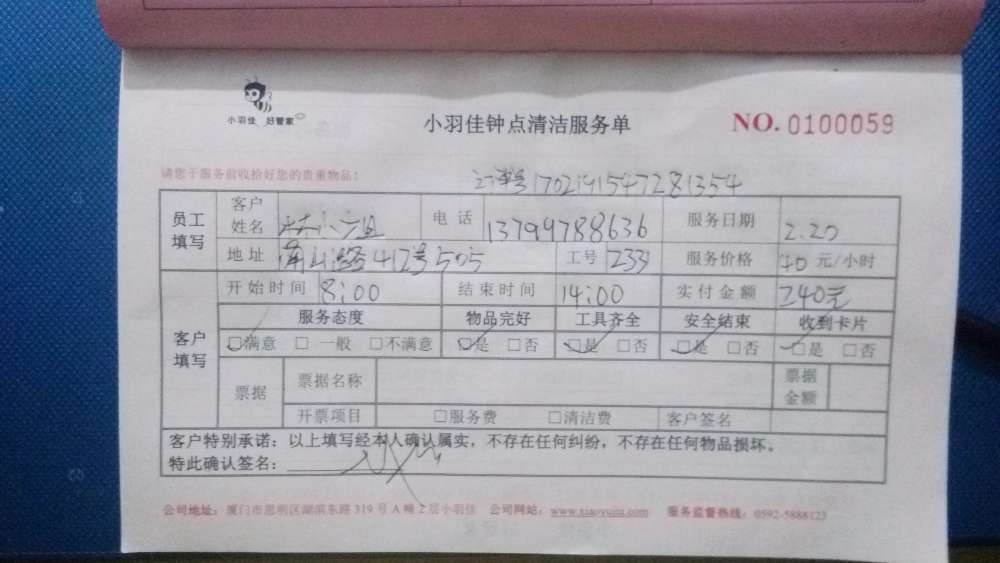 小羽佳 好管家
小羽佳钟点清洁服务单
NO. 0100059
请您于服务前收拾好您的贵重物品！
订单号1702191547281354
员工填写
客户姓名 林小姐 电话 13799788636 服务日期 2.20
地址 南山路412号505 工号 233 服务价格 40元/小时
客户填写
开始时间 8:00 结束时间 14:00 实付金额 240元
服务态度 物品完好 工具齐全 安全结束 收到卡片
☑满意 □一般 □不满意 ☑是 □否 ☑是 □否 ☑是 □否 ☑是 □否
票据 票据名称 票据金额
开票项目 □服务费 □清洁费 客户签名
客户特别承诺：以上填写经本人确认属实，不存在任何纠纷，不存在任何物品损坏。
特此确认签名：
公司地址：厦门市思明区湖滨东路319号A幢2层小羽佳 公司网站：www.xiaoyujia.com 服务监督热线：0592-5888123